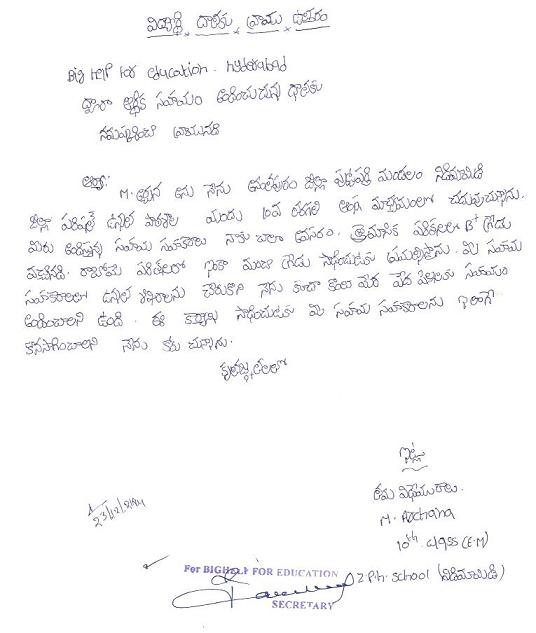 విద్యార్థి దాతకు వ్రాయు ఉత్తరం
Big help for education. hyderabad
ద్వారా ఆర్థిక సహాయం అందించుచున్న దాతకు
నమస్కరించి వ్రాయునది
ఆర్యా.
M. అర్చన అను నేను అనంతపురం జిల్లా పుట్టపర్తి మండలం నిడిమామిడి
జిల్లా పరిషత్ ఉన్నత పాఠశాల యందు 10వ తరగతి ఆంగ్ల మాధ్యమంలో చదువుచున్నాను.
మీరు అందిస్తున్న సహాయ సహకారాలు నాకు చాలా అవసరం. త్రైమాసిక పరీక్షలలో B+ గ్రేడు
వచ్చినది. రాబోయే పరీక్షలలో ఇంకా మంచి గ్రేడు సాధించుటకు ప్రయత్నిస్తాను. మీ సహాయ
సహకారాలతో ఉన్నత శిఖరాలను చేరుకొని నేను కూడా కొంత మేర పేద పిల్లలకు సహాయం
అందించాలని ఉంది. ఈ లక్ష్యాన్ని సాధించుటకు మీ సహాయ సహకారాలను ఇలాగే
కొనసాగించాలని నేను కోరు చున్నాను.
కృతజ్ఞతలతో
ఇట్లు
తమ విధేయురాలు.
M. Archana
10th class (E.M)
Z.P.H. School (నిడిమామిడి)
23/12/2014
For BIGHELP FOR EDUCATION
SECRETARY